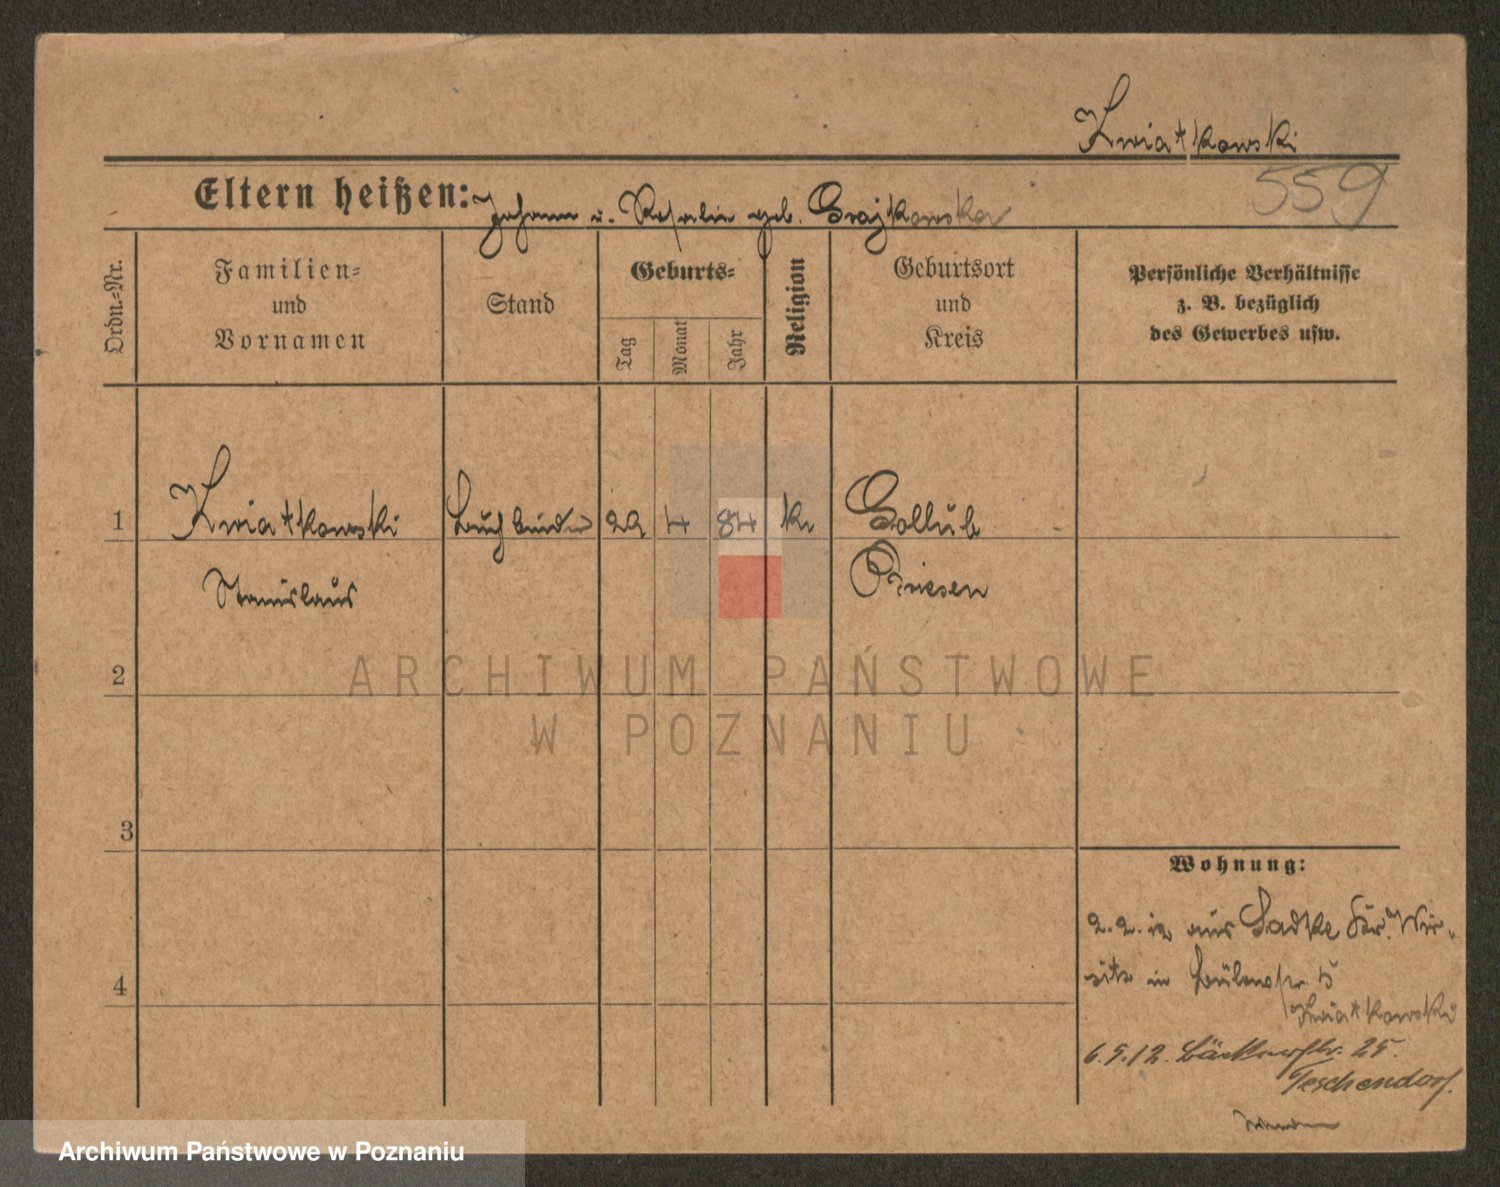 Kwiatkowski
559
Eltern heißen: Johann u. Rosalie geb. Grajkowska
Ordn.-Nr.
Familien-
und
Vornamen
Stand
Geburts-
Tag
Monat
Jahr
Religion
Geburtsort
und
Kreis
Persönliche Verhältnisse
z. B. bezüglich
des Gewerbes usw.
1 Kwiatkowski Buchbinder 29 4 84 k. Gollub
Stanislaus Briesen
2
3
4
Wohnung:
2.2.12 aus Sadke Kr. Wir-
sitz in Bülowstr. 5
Kwiatkowski
6.5.12. Bäckerstr. 25.
Teschendorf.
ARCHIWUM PAŃSTWOWE
W POZNANIU
Archiwum Państwowe w Poznaniu